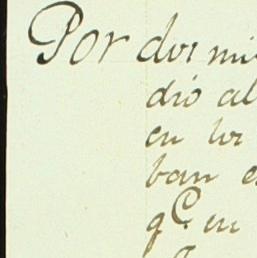 Por dos mi
dió al
en los
ban e
q.e en